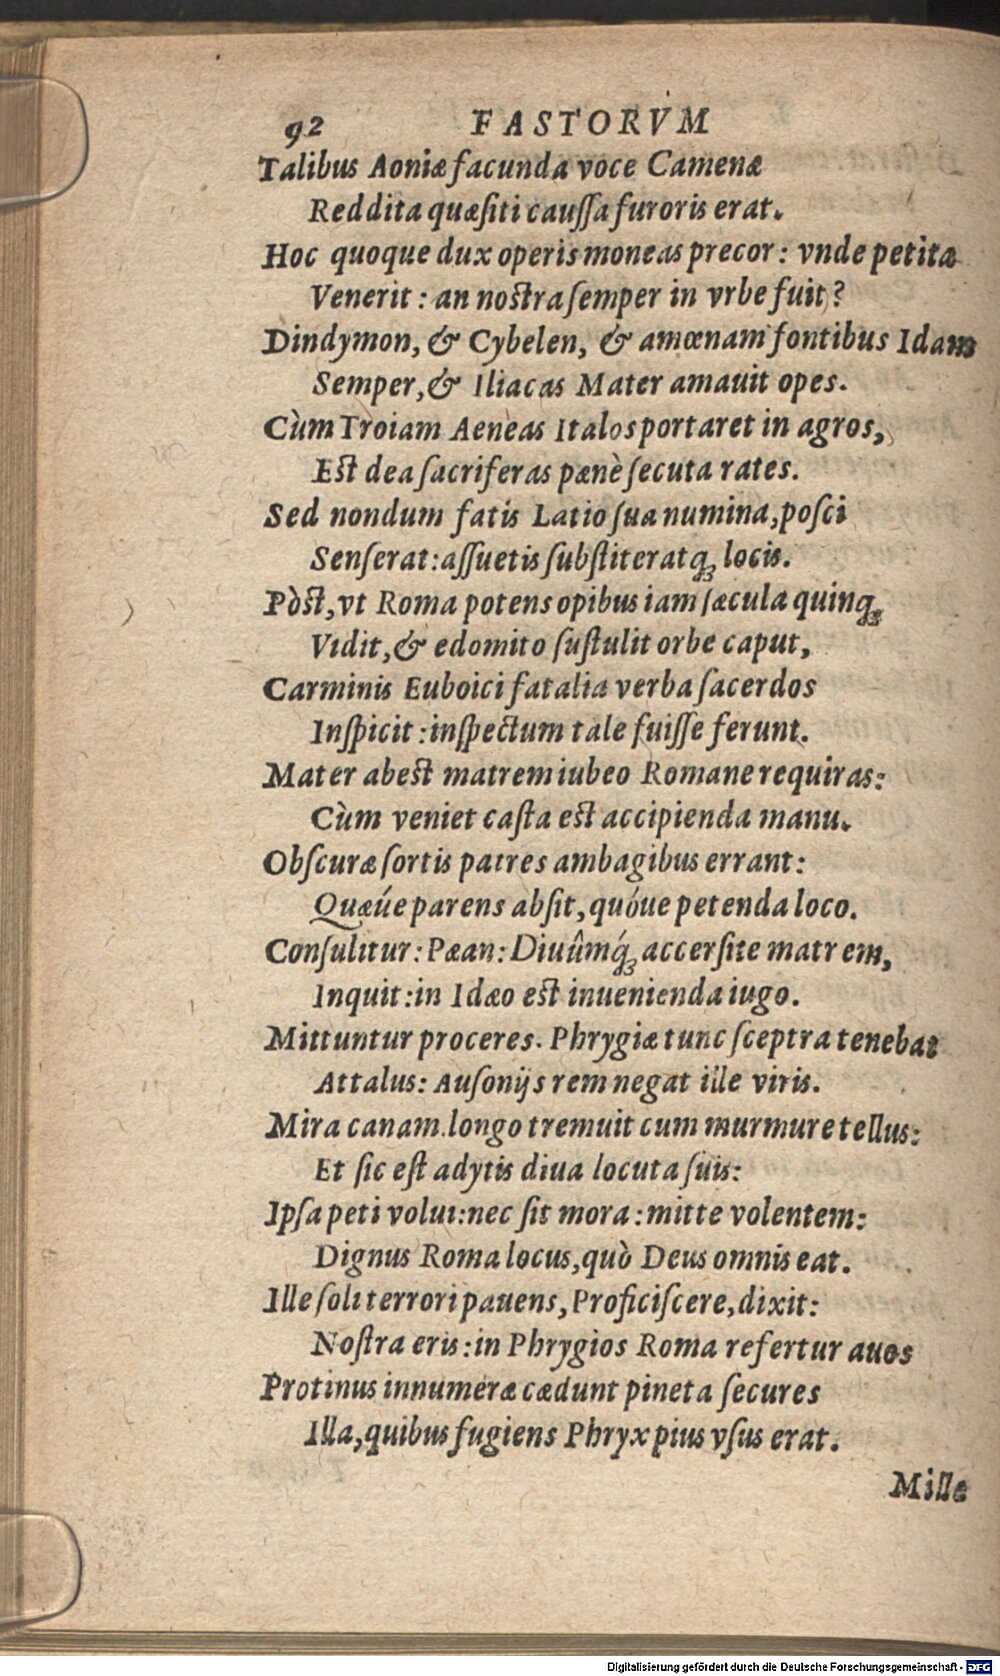 92 FASTORVM
Talibus Aoniæ facunda voce Camenæ
Reddita quæſiti cauſſa furoris erat.
Hoc quoque dux operis moneas precor: vnde petita
Venerit: an noſtra ſemper in vrbe fuit?
Dindymon, & Cybelen, & amœnam fontibus Idam
Semper, & Iliacas Mater amauit opes.
Cùm Troiam Aeneas Italos portaret in agros,
Eſt dea ſacriferas pænè ſecuta rates.
Sed nondum fatis Latio ſua numina, poſci
Senſerat: aſſuetis ſubſtiteratq́; locis.
Pòſt, vt Roma potens opibus iam ſæcula quinq;
Vidit, & edomito ſuſtulit orbe caput,
Carminis Euboici fatalia verba ſacerdos
Inſpicit: inſpectum tale fuiſſe ferunt.
Mater abeſt matrem iubeo Romane requiras:
Cùm veniet caſta eſt accipienda manu.
Obſcuræ ſortis patres ambagibus errant:
Quæúe parens abſit, quóue petenda loco.
Conſulitur: Pæan: Diuûmq́; accerſite matrem,
Inquit: in Idæo eſt inuenienda iugo.
Mittuntur proceres. Phrygiæ tunc ſceptra tenebat
Attalus: Auſonijs rem negat ille viris.
Mira canam. longo tremuit cum murmure tellus:
Et ſic eſt adytis diua locuta ſuis:
Ipſa peti volui: nec ſit mora: mitte volentem:
Dignus Roma locus, quò Deus omnis eat.
Ille ſoli terrori pauens, Proficiſcere, dixit:
Noſtra eris: in Phrygios Roma refertur auos
Protinus innumeræ cædunt pineta ſecures
Illa, quibus fugiens Phryx pius vſus erat.
Mille
Digitalisierung gefördert durch die Deutsche Forschungsgemeinschaft - DFG